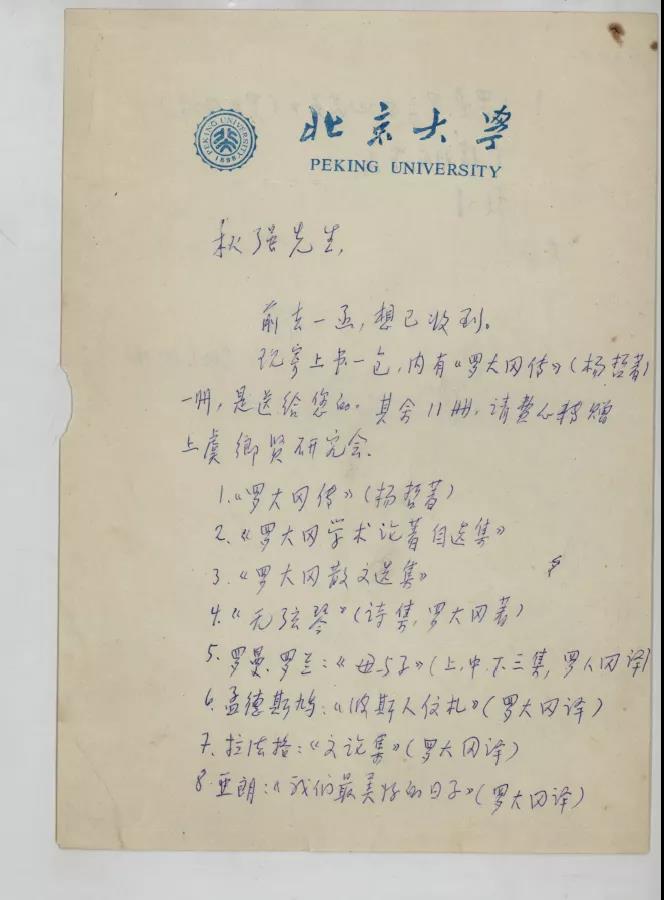 PEKING UNIVERSITY
1898
北京大学
PEKING UNIVERSITY
秋强先生,
前去一函,想已收到。
现寄上书一包,内有《罗大冈传》(杨哲著)
一册,是送给您的。其余11册,请费心转赠
上虞乡贤研究会。
1.《罗大冈传》(杨哲著)
2.《罗大冈学术论著自选集》
3.《罗大冈散文选集》
4.《无弦琴》(诗集,罗大冈著)
5.罗曼.罗兰:《母与子》(上.中.下三集,罗大冈译)
6.孟德斯鸠:《波斯人信札》(罗大冈译)
7.拉法格:《文论集》(罗大冈译)
8.亚朗:《我们最美好的日子》(罗大冈译)